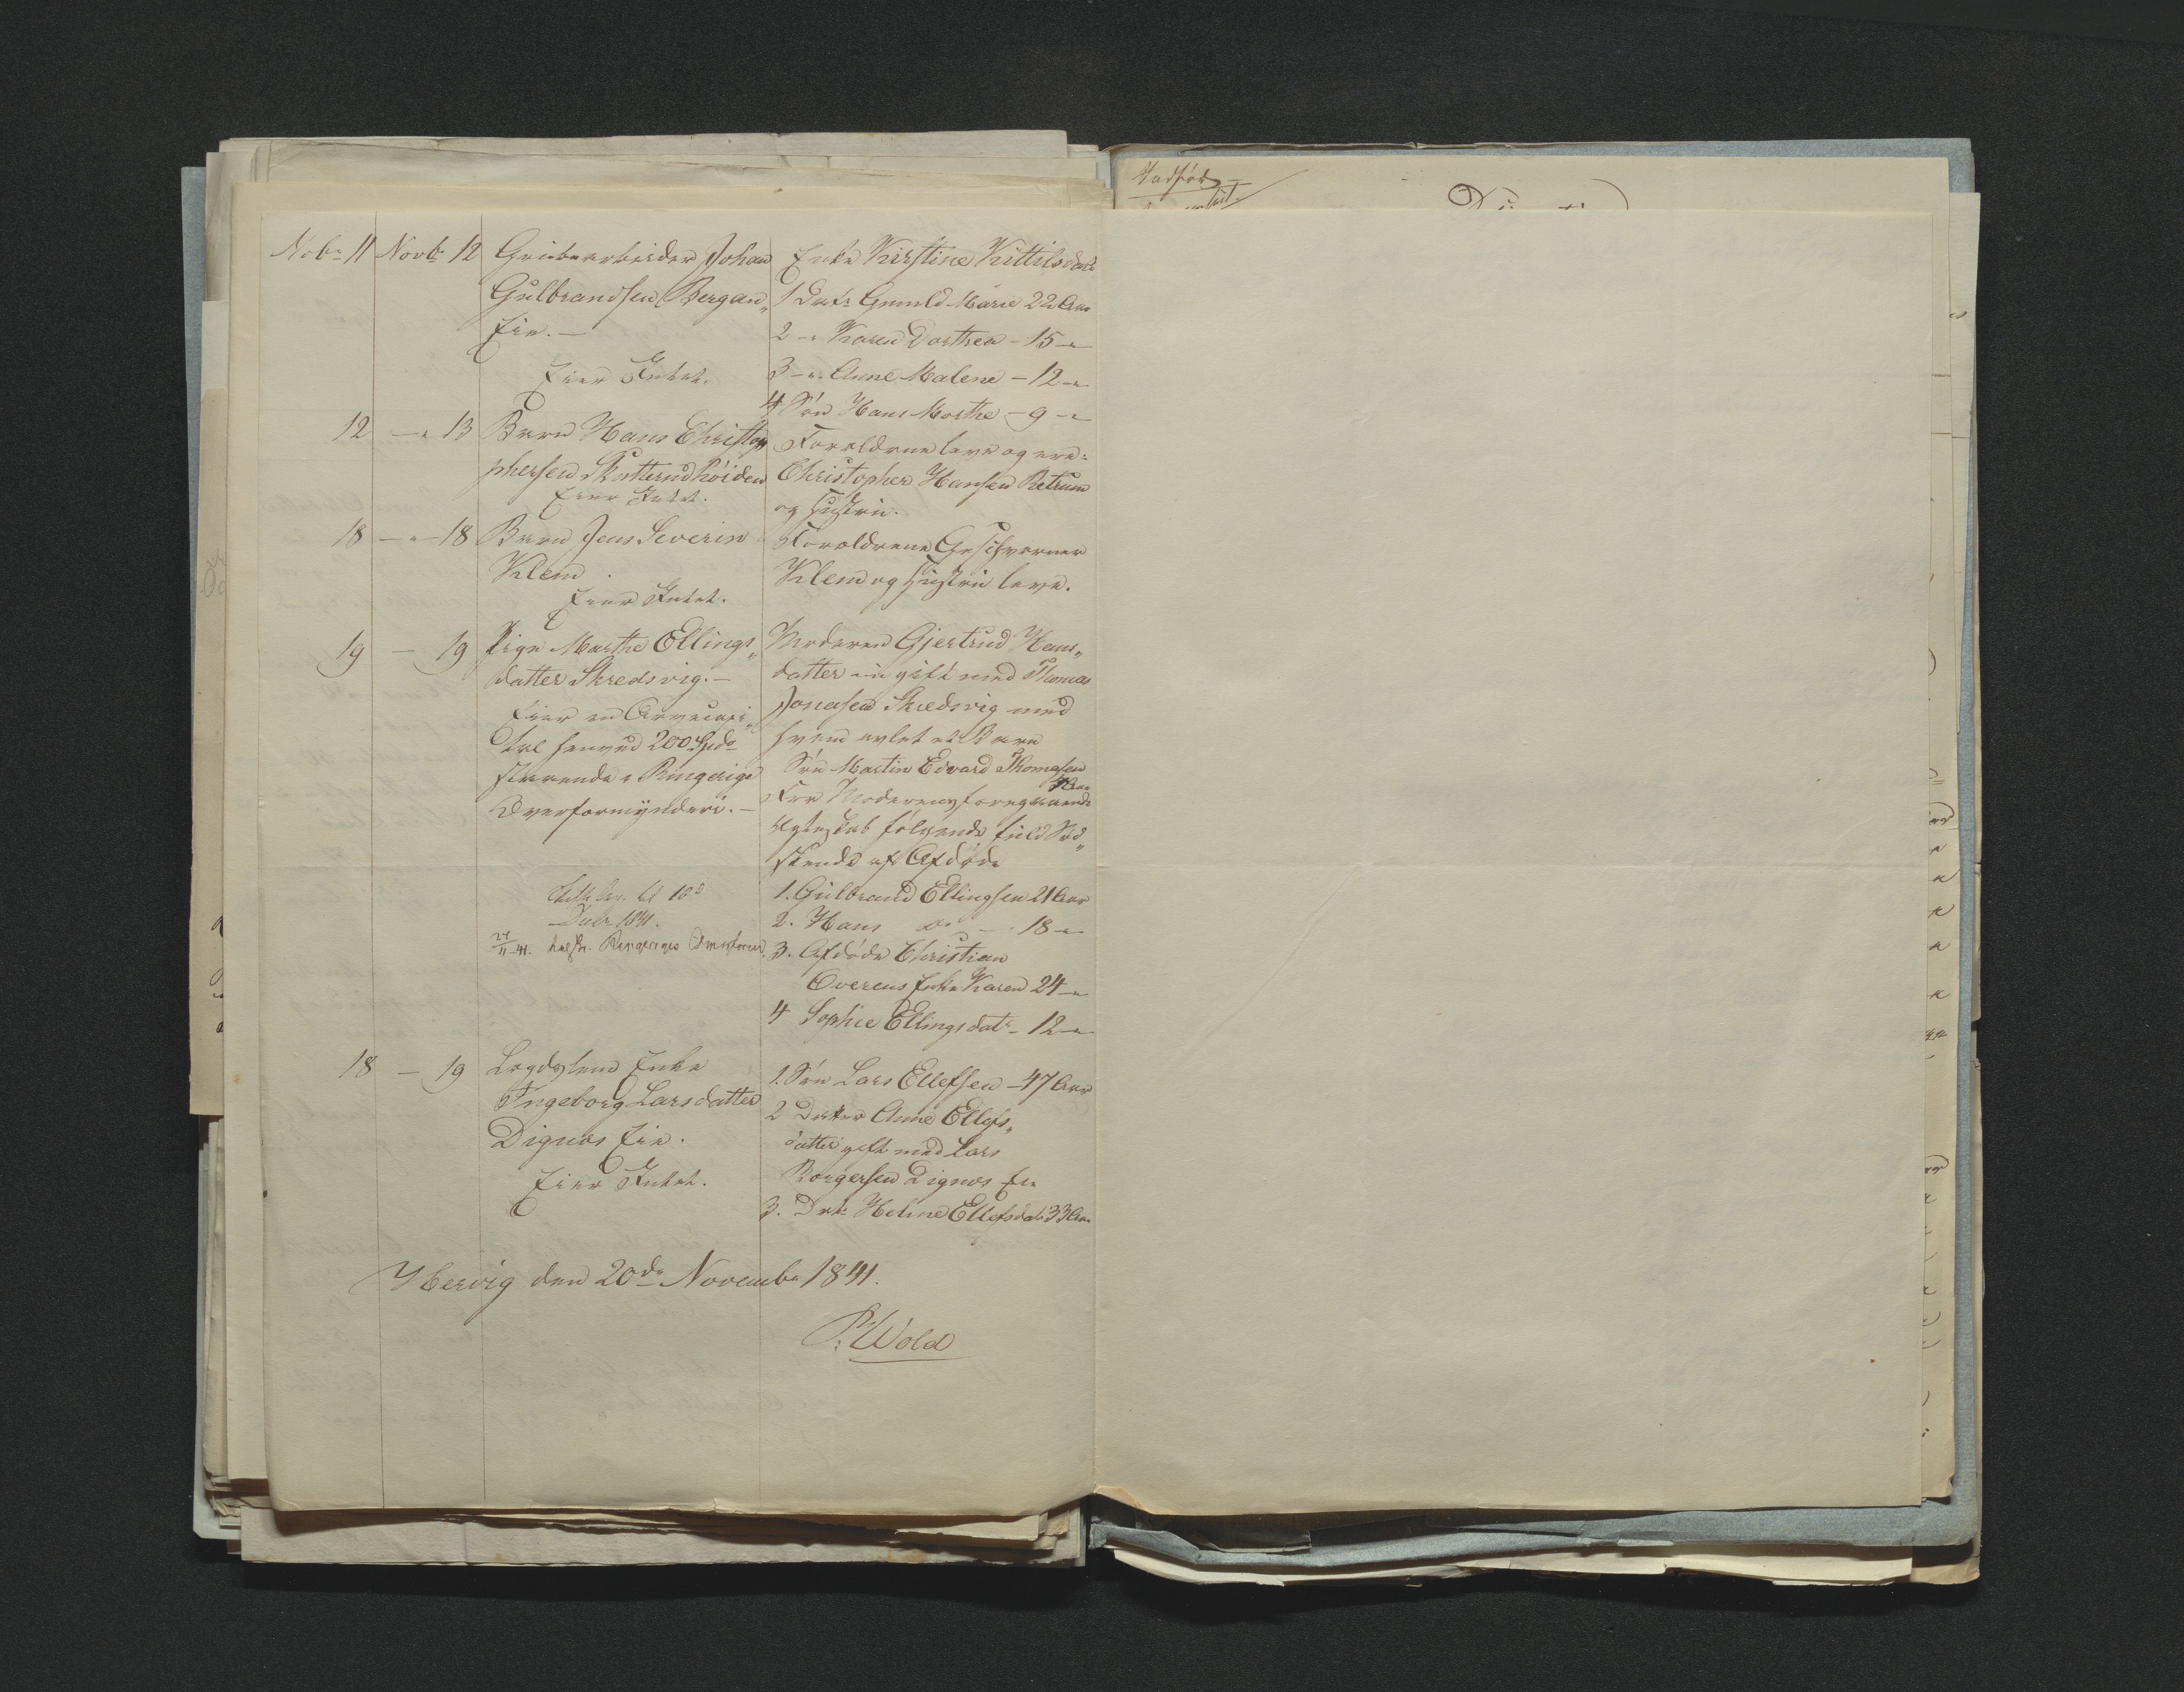 Nobr 11 Novbr 12 Grubearbeider Johan
Gulbrandsen Bergan„
Eie.—
Eier Intet.
Enke Kirstine Kittilsdatr
1 Datr Gunild Marie 22 Aar
2 -" Karen Dorthea - 15 -"
3 -" Anne Malene - 12 -"
4 Søn Hans Marthe - 9 -"
12 -" 13 Barn Hans Christop
phersen Skutterudhöiden
Eier Intet.
Forældrene leve og ere:
Christopher Hansen Retrum
og Hustru.
18 -"- 18 Barn Jens Severin
Klem
Eier Intet.
Forældrene Geschworner
Klem og Hustru leve.
19 - 19 Pige Marthe Ellings„
datter Skredsvig.—
Eier en Arvecapi„
tal henved 200 Spd
staaende i Ringerige
Overformynderi.—
Moderen Gjertrud Hans„
datter gift med Thomas
Jonasen Skredsvig med
hvem avlet et Barn
Søn Martin Edvard Thomasen
Aar
Før Moderens foregaaende
Ægteskab følgende fuld Sød„
skende af Afdöde
1. Gulbrand Ellingsen 21 Aar
2. Hans do - 18 -"
3. Afdöde Christian
Overens Enke Karen 24 -"
4 Sophie Ellingsdatr - 12 -"
til 10d
Decbr 1841.
24/11 41. Ringeriges Overform
18 - 19 Lægdslem Enke
Ingeborg Larsdatter
Dignæs Eie.
Eier Intet.
1. Søn Lars Ellefsen - 47 Aar
2 Datter Anne Ellefs„
datter gift med Lars
Borgersen Dignæs Eie
3. Datr Heline Ellefsdatr 33 Aar
Ybervig den 20de Novembr 1841.
P. Wold